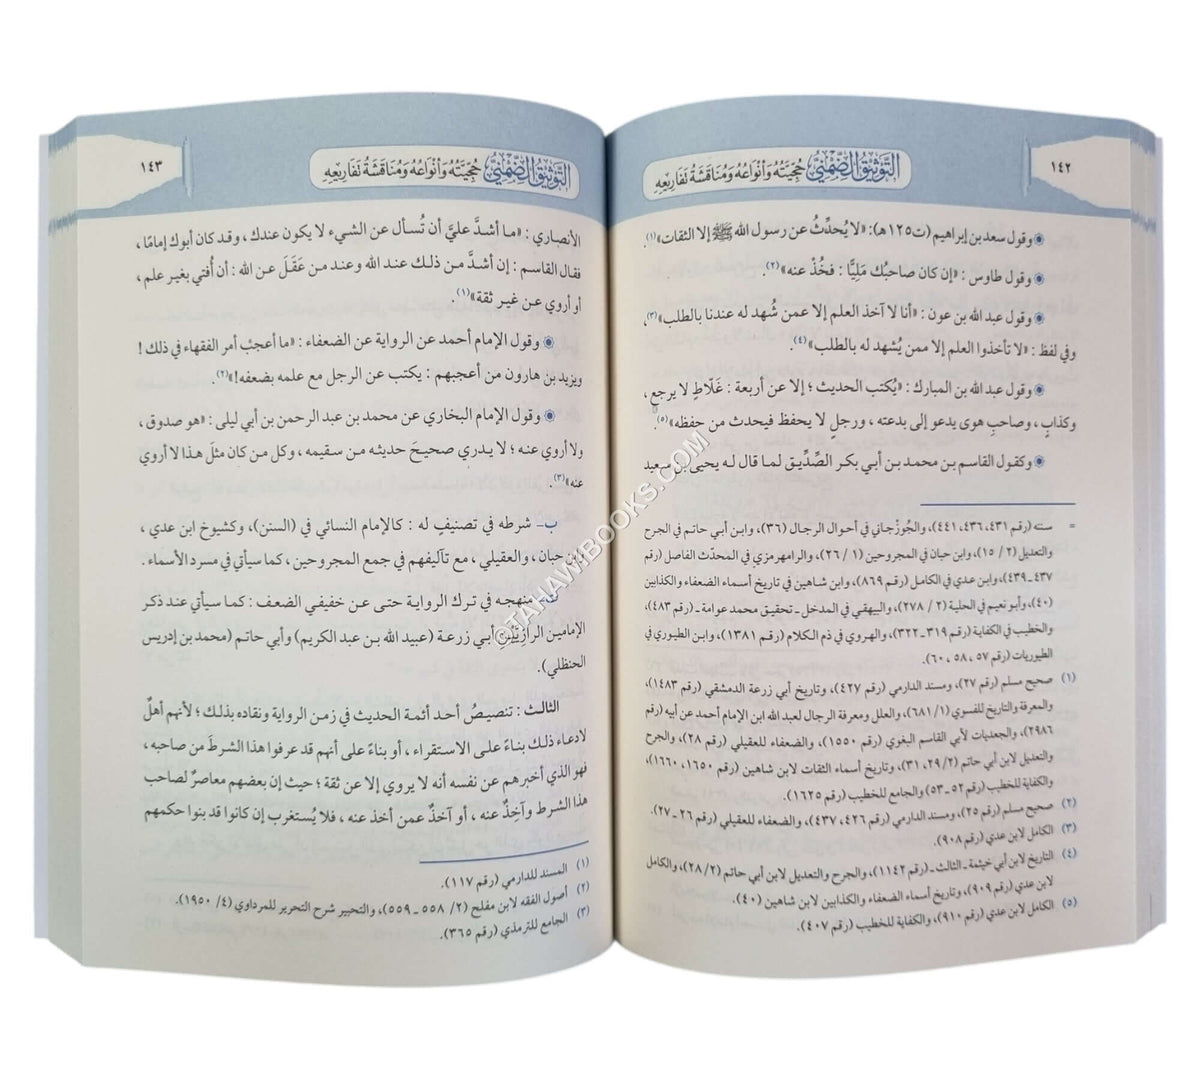 ١٤٢
التوثيق الضمني حجيته وأنواعه ومناقشة تفاريعه
وقول سعد بن إبراهيم (ت١٢٥هـ): «لا يُحدِّثُ عن رسول الله ﷺ إلا الثقات»(١).
وقول طاوس : «إن كان صاحبُك مَلِيًّا : فخُذْ عنه»(٢).
وقول عبد الله بن عون : «أنا لا آخذ العلم إلا عمن شُهد له عندنا بالطلب»(٣)،
وفي لفظ : «لا تأخذوا العلم إلا ممن يُشهد له بالطلب»(٤).
وقول عبد الله بن المبارك : «يُكتب الحديث ؛ إلا عن أربعة : غَلَاطٍ لا يرجع ،
وكذابٍ ، وصاحبِ هوى يدعو إلى بدعته ، ورجلٍ لا يحفظ فيحدث من حفظه»(٥).
وكقول القاسم بن محمد بن أبي بكر الصِّدِّيق لما قال له يحيى بن سعيد
= سننه (رقم ٤٣١، ٤٣٦، ٤٤١)، والجُوزْجاني في أحوال الرجال (٣٦)، وابن أبي حاتم في الجرح
والتعديل (٢ / ١٥)، وابن حبان في المجروحين (١ / ٢٦)، والرامهرمزي في المحدّث الفاصل (رقم
٤٣٧ـ٤٣٩)، وابن عدي في الكامل (رقم ٨٦٩)، وابن شاهين في تاريخ أسماء الضعفاء والكذابين
(٤٠)، وأبو نعيم في الحلية (٢ / ٢٧٨)، والبيهقي في المدخل ـ تحقيق محمد عوامة ـ (رقم ٤٨٣)،
والخطيب في الكفاية (رقم ٣١٩ـ٣٢٢)، والهروي في ذم الكلام (رقم ١٣٨١)، وابن الطيوري في
الطيوريات (رقم ٥٧ ، ٥٨ ، ٦٠).
(١) صحيح مسلم (رقم ٢٧)، ومسند الدارمي (رقم ٤٢٧)، وتاريخ أبي زرعة الدمشقي (رقم ١٤٨٣)،
والمعرفة والتاريخ للفسوي (١/ ٦٨١)، والعلل ومعرفة الرجال لعبد الله ابن الإمام أحمد عن أبيه (رقم
٢٩٨٦)، والجعديات لأبي القاسم البغوي (رقم ١٥٥٠)، والضعفاء للعقيلي (رقم ٢٨)، والجرح
والتعديل لابن أبي حاتم (٢/ ٢٩، ٣١)، وتاريخ أسماء الثقات لابن شاهين (رقم ١٦٥٠، ١٦٦٠)،
والكفاية للخطيب (رقم ٥٢ـ٥٣) والجامع للخطيب (رقم ١٦٢٥).
(٢) صحيح مسلم (رقم ٢٥)، ومسند الدارمي (رقم ٤٢٦، ٤٣٧)، والضعفاء للعقيلي (رقم ٢٦ ـ ٢٧).
(٣) الكامل لابن عدي (رقم ٩٠٨).
(٤) التاريخ لابن أبي خيثمة ـ الثالث ـ (رقم ١١٤٢)، والجرح والتعديل لابن أبي حاتم (٢/ ٢٨)، والكامل
لابن عدي (رقم ٩٠٩)، وتاريخ أسماء الضعفاء والكذابين لابن شاهين (٤٠).
(٥) الكامل لابن عدي (رقم ٩١٠)، والكفاية للخطيب (رقم ٤٠٧).
١٤٣
التوثيق الضمني حجيته وأنواعه ومناقشة تفاريعه
الأنصاري : «ما أشدَّ عليَّ أن تُسأل عن الشيء لا يكون عندك ، وقد كان أبوك إمامًا ،
فقال القاسم : إن أشدَّ من ذلك عند الله وعند من عَقَلَ عن الله : أن أُفتي بغير علم ،
أو أروي عن غير ثقة»(١).
وقول الإمام أحمد عن الرواية عن الضعفاء : «ما أعجبُ أمر الفقهاء في ذلك !
ويزيد بن هارون من أعجبهم : يكتب عن الرجل مع علمه بضعفه!»(٢).
وقول الإمام البخاري عن محمد بن عبد الرحمن بن أبي ليلى : «هو صدوق ،
ولا أروي عنه ؛ لا يدري صحيحَ حديثه من سقيمه ، وكل من كان مثلَ هذا لا أروي
عنه»(٣).
ب– شرطه في تصنيفٍ له : كالإمام النسائي في (السنن)، وكشيوخ ابن عدي ،
وابن حبان ، والعقيلي ، مع تآليفهم في جمع المجروحين ، كما سيأتي في مسرد الأسماء .
منهجه في ترك الرواية حتى عن خفيفي الضعف : كما سيأتي عند ذكر
الإمامين الرازيَّيْن أبي زرعة (عبيد الله بن عبد الكريم) وأبي حاتم (محمد بن إدريس
الحنظلي).
الثالث : تنصيصُ أحد أئمة الحديث في زمن الرواية ونقاده بذلك ؛ لأنهم أهلٌ
لادعاء ذلك بناءً على الاستقراء ، أو بناءً على أنهم قد عرفوا هذا الشرطَ من صاحبه ،
فهو الذي أخبرهم عن نفسه أنه لا يروي إلا عن ثقة ؛ حيث إن بعضهم معاصرٌ لصاحب
هذا الشرط وآخِذٌ عنه ، أو آخذٌ عمن أخذ عنه ، فلا يُستغرب إن كانوا قد بنوا حكمهم
(١) المسند للدارمي (رقم ١١٧).
(٢) أصول الفقه لابن مفلح (٢/ ٥٥٨ ـ ٥٥٩)، والتحبير شرح التحرير للمرداوي (٤/ ١٩٥٠).
(٣) الجامع للترمذي (رقم ٣٦٥).
©TAHAWIBOOKS.COM